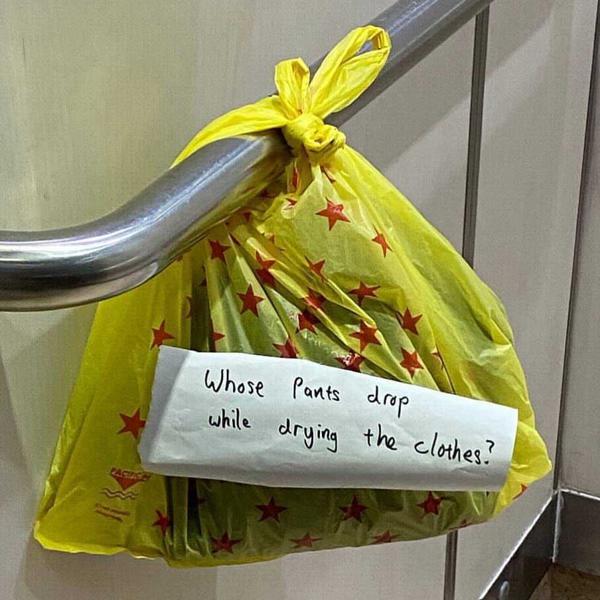 Whose Pants drop
while drying the clothes?